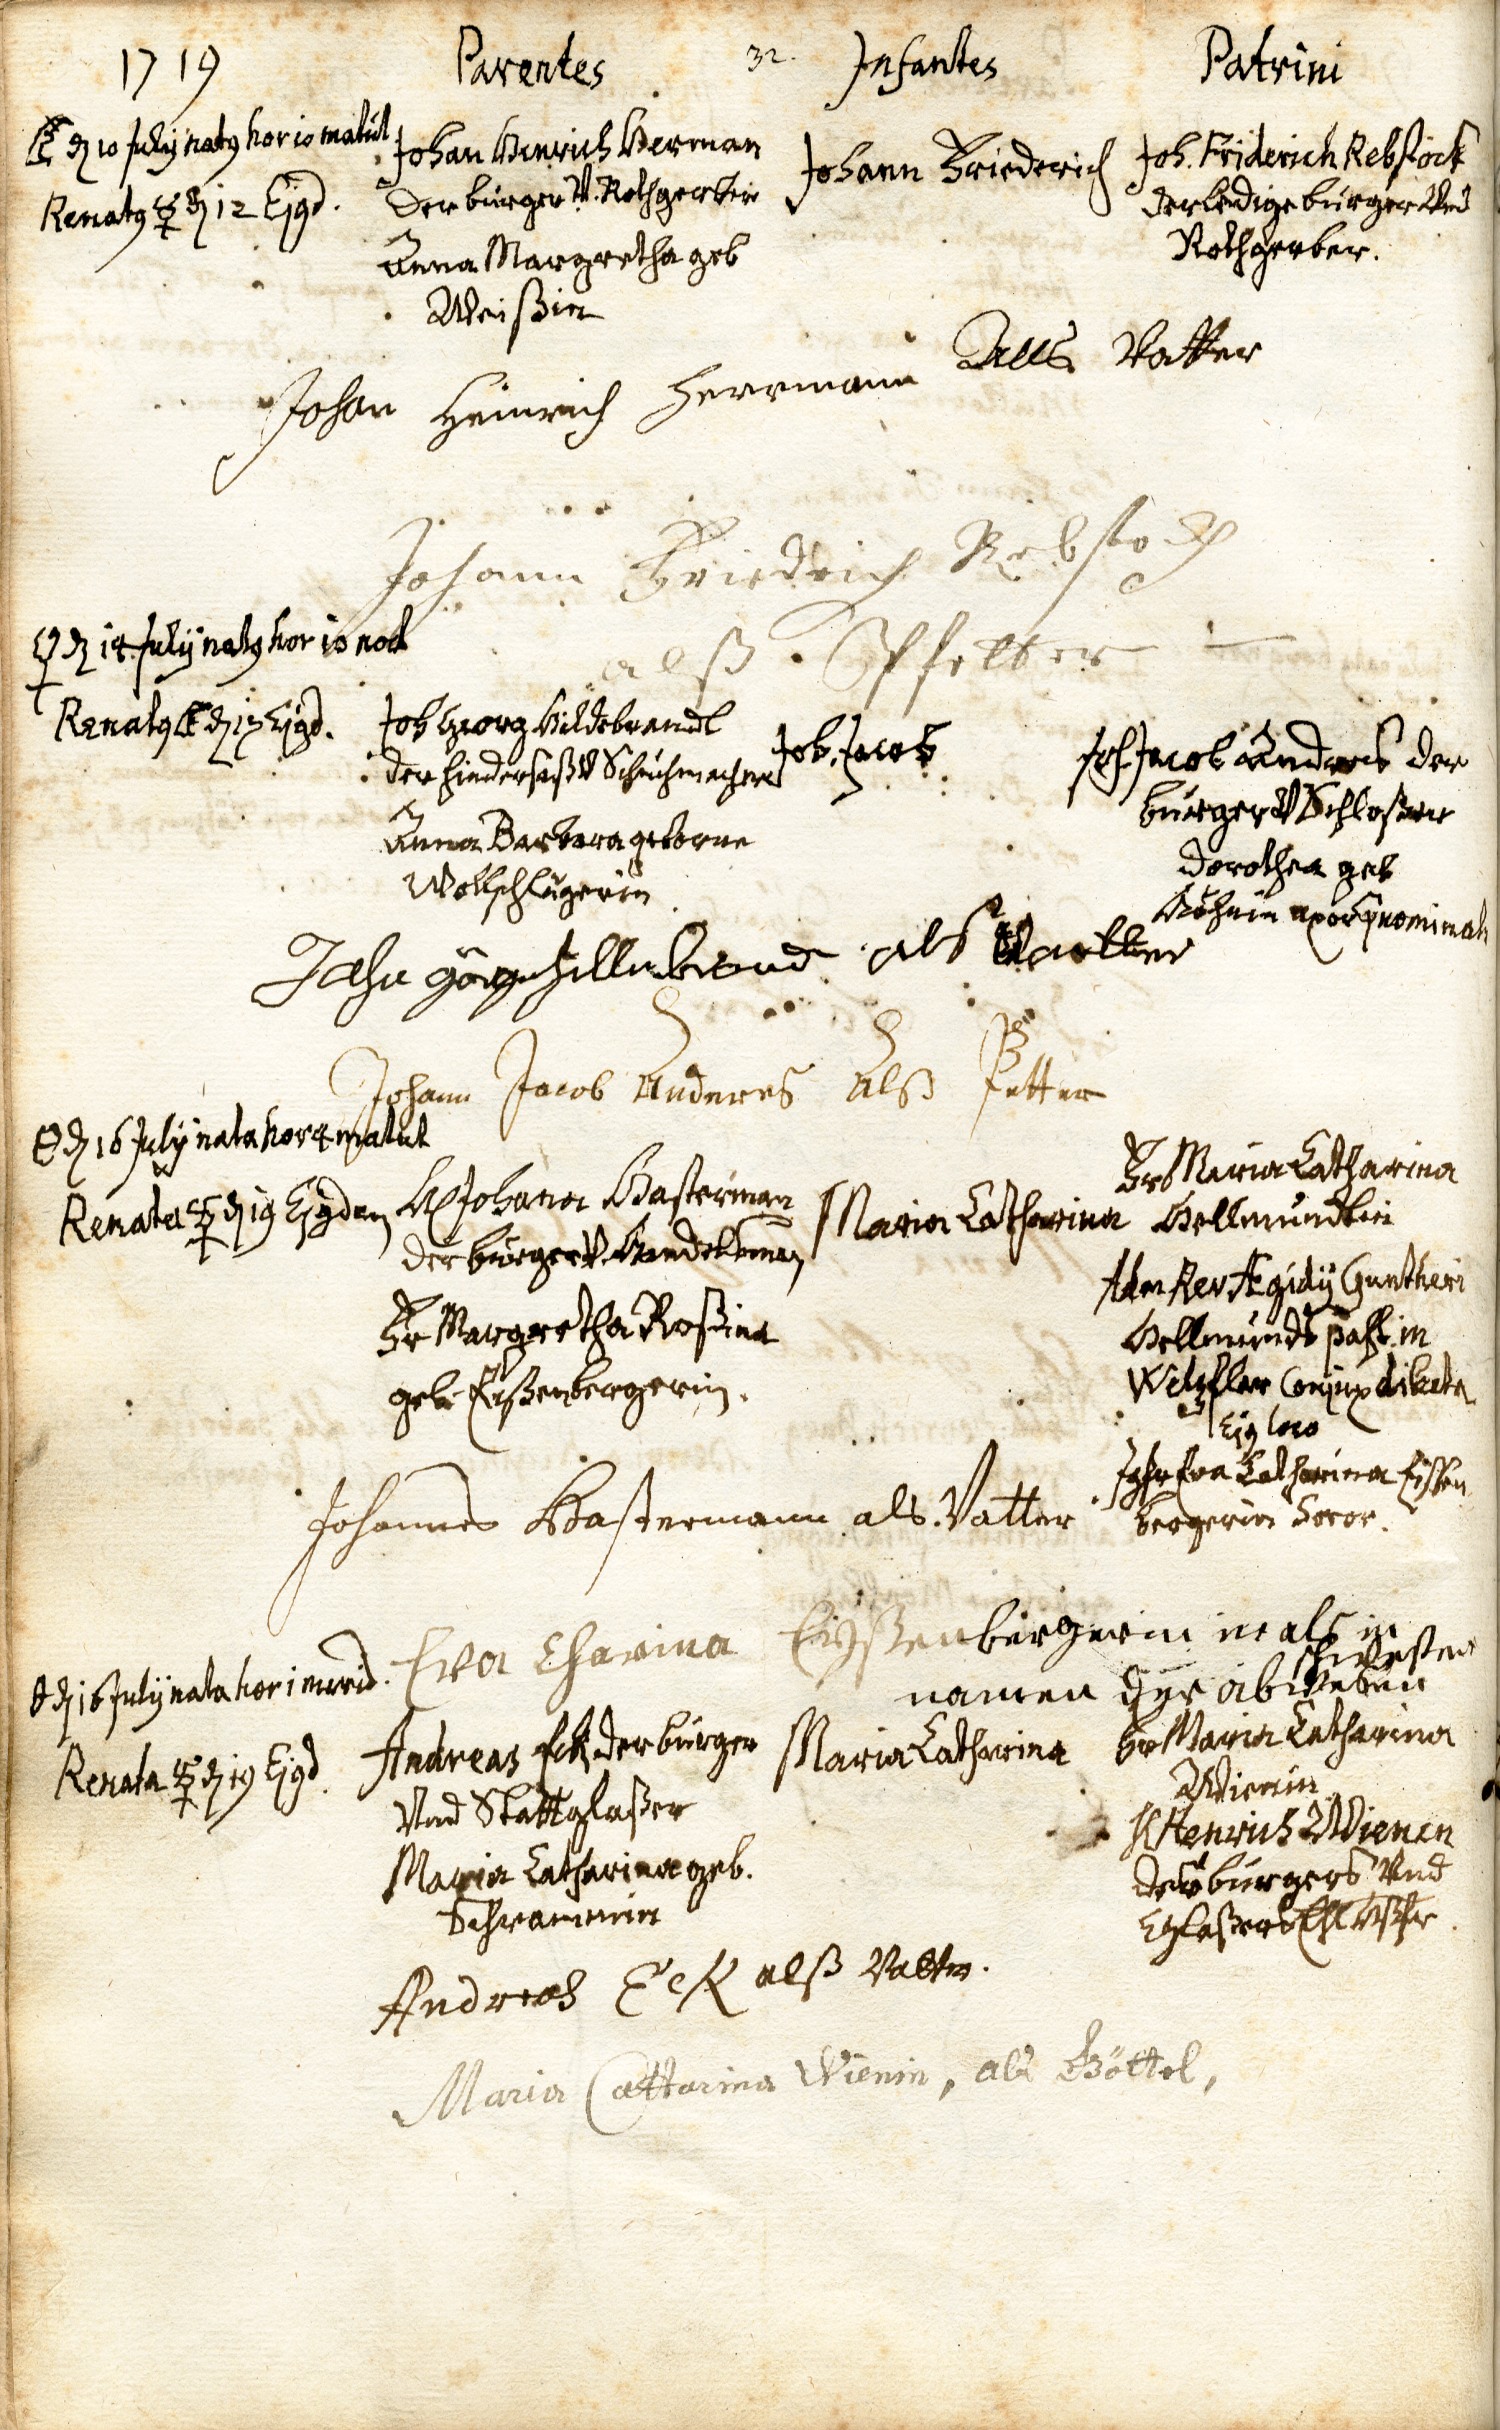 1719 Parentes 32. Infantes Patrini
☾ d 10 July natg hor 10 matut
Renatg ☿ d 12 Ejgd.
Johan Henrich Herman
der burger V. Rothgerber
Anna Margretha geb
Weißin
Johann Friederich
Joh. Friderich Rebstock
der ledige burger Und
Rothgerber.
Johan Heinrich Herrmann Alls Vatter
Johann Friedrich Rebstock
alß Pfetter
♀ d 14 July natg hor 10 noct
Renatg ☾ d 17 Ejgd.
Joh Georg Hildebrandt
der hindersaß V Schuhmacher
Anna Barbara geborne
Wollschlägerin
Joh. Jacob
Joh. Jacob Andres der
burger V Schloßer
Dorothea geb
uxor nominat
als Vatter
Johann Jacob Anderes Alß Petter
☉ d 16 July nata hor 4 matut
Renata ☿ d 19 Ejgdem
H Johana Hasterman
der burger V. Handelsman
Fr Margretha Roßina
geb. Eißenbergerin.
Maria Catharina
Fr Maria Catharina
Hellmundtin
Adm Rev Ægidÿ Guntheri
Hellmunds past. in
Wetzflar Conjux dilecta
Ejg loco
Jgfr Eva Catharina Eißen
bergerin Soror.
Johannes Hastermann als Vatter
Eva Charina Eißenbergerin als in
schwester
namen der abwesen
☉ d 16 July nata hor 1 merid.
Renata ☿ d 19 Ejgd
Andreas Eck der burger
Vnd Stattglaßer
Maria Catharina geb.
Schrammin
Maria Catharina
Fr Maria Catharina
Wienin
H Henrich Wienen
des burgers Vnd
Glaßers
Andreas Eck alß Vatter.
Maria Cattarina Wienin, als Göttel,